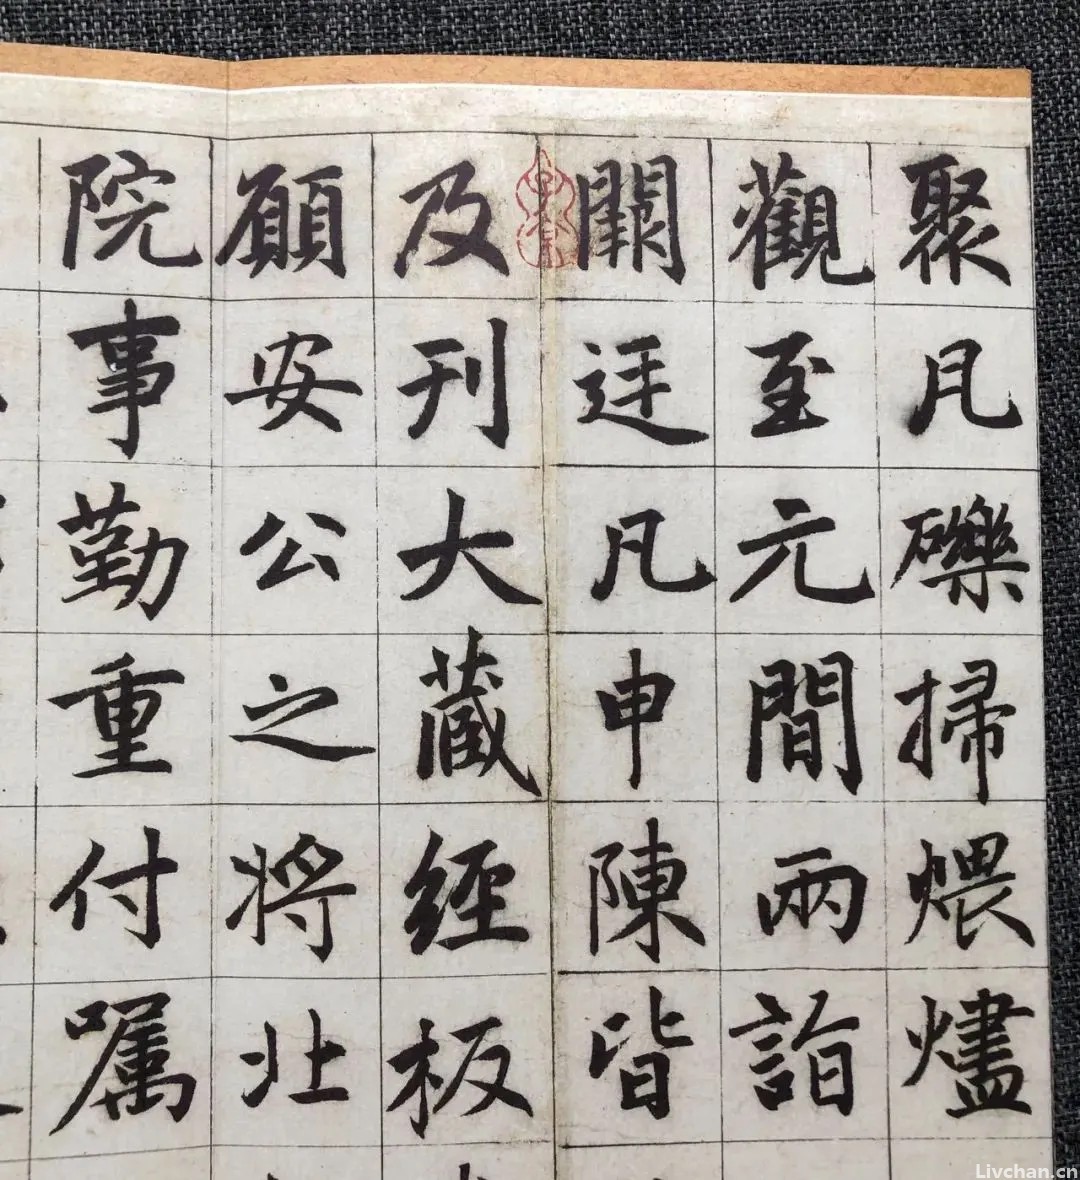 聚瓦礫掃煨燼
觀至元間兩詣
闕廷凡申陳皆
及刊大藏經板
願安公之將北
院事勤重付嘱
Livchan.cn